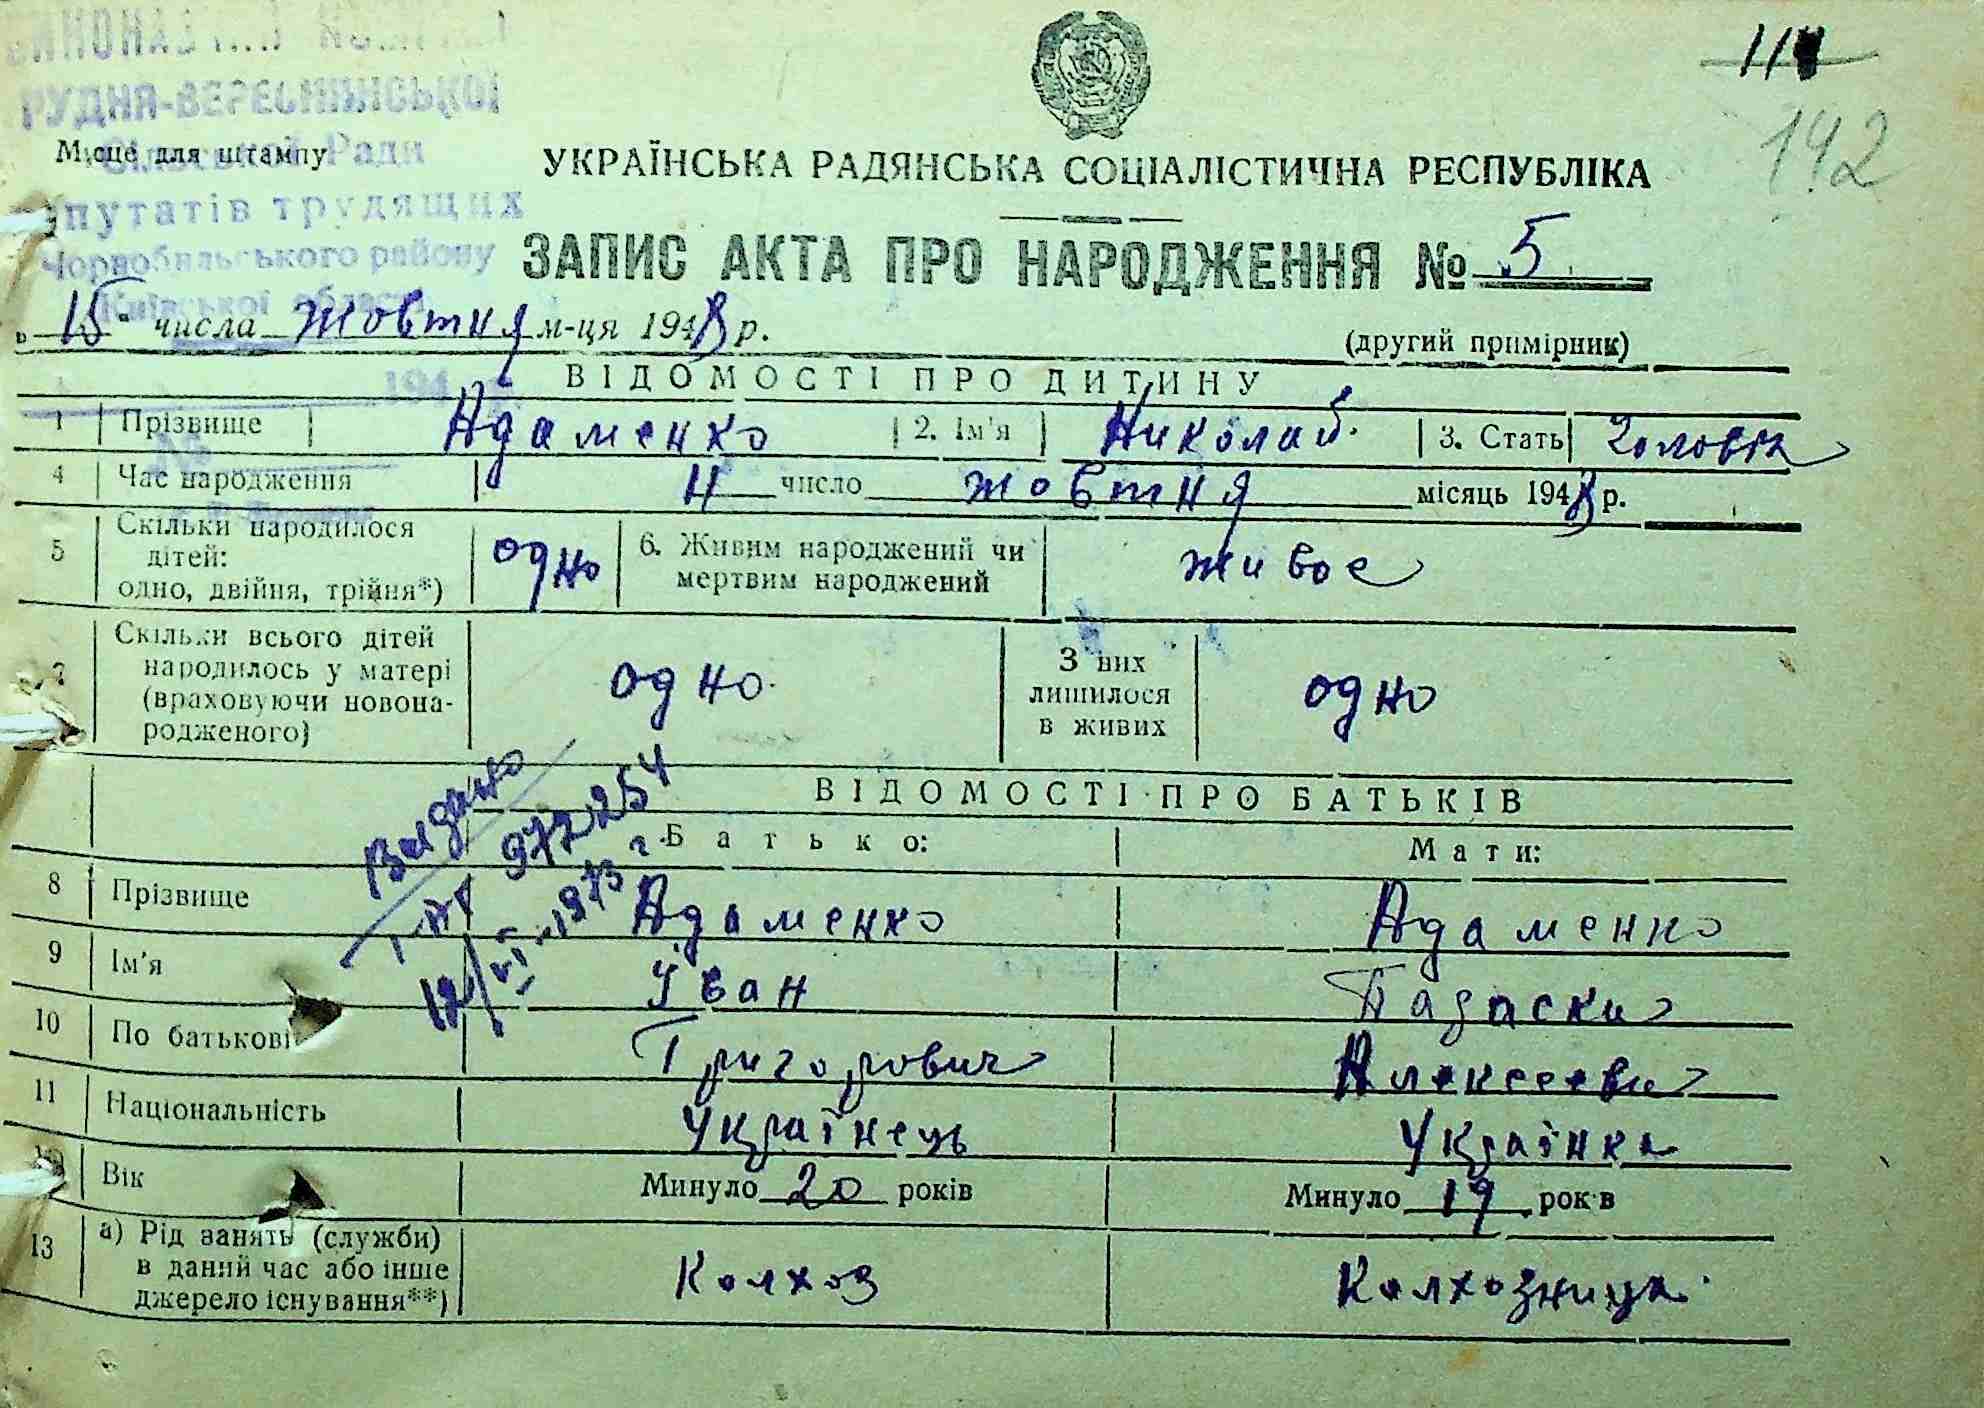 РУДНЯ-ВЕРЕСНЯНСЬКОЇ
Сільської Ради
депутатів трудящих
Чорнобильського району
Київської області
194
№
Місце для штампу
111
142
УКРАЇНСЬКА РАДЯНСЬКА СОЦІАЛІСТИЧНА РЕСПУБЛІКА
ЗАПИС АКТА ПРО НАРОДЖЕННЯ № 5
15 числа жовтня м-ця 1948 р.
(другий примірник)
ВІДОМОСТІ ПРО ДИТИНУ
1 Прізвище Адаменко 2. Ім'я Николай 3. Стать
4 Час народження 11 число жовтня місяць 1948 р.
5 Скільки народилося дітей: одно, двійня, трійня*) одно 6. Живим народжений чи мертвим народжений живое
7 Скільки всього дітей народилось у матері (враховуючи новонародженого) одно З них лишилося в живих одно
Видано
972254
12/VI-1973 г.
ВІДОМОСТІ ПРО БАТЬКІВ
Батько: Мати:
8 Прізвище Адаменко Адаменко
9 Ім'я Іван
10 По батькові Григорович
11 Національність Українець Українка
12 Вік Минуло 20 років Минуло 19 рок в
13 а) Рід занять (служби) в даний час або інше джерело існування**) Колхоз Колхозница